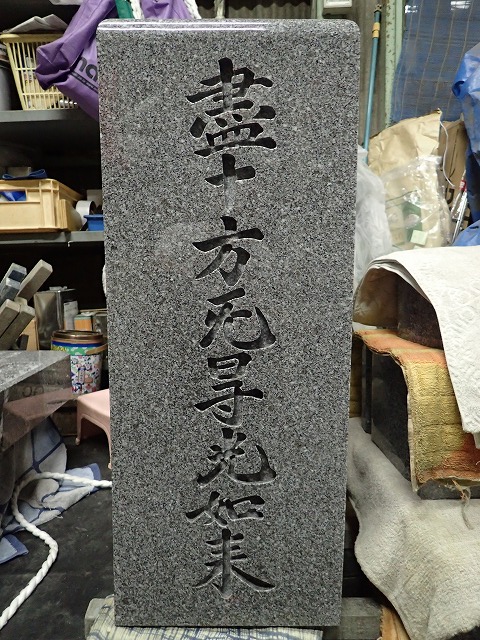 盡十方无㝵光如来